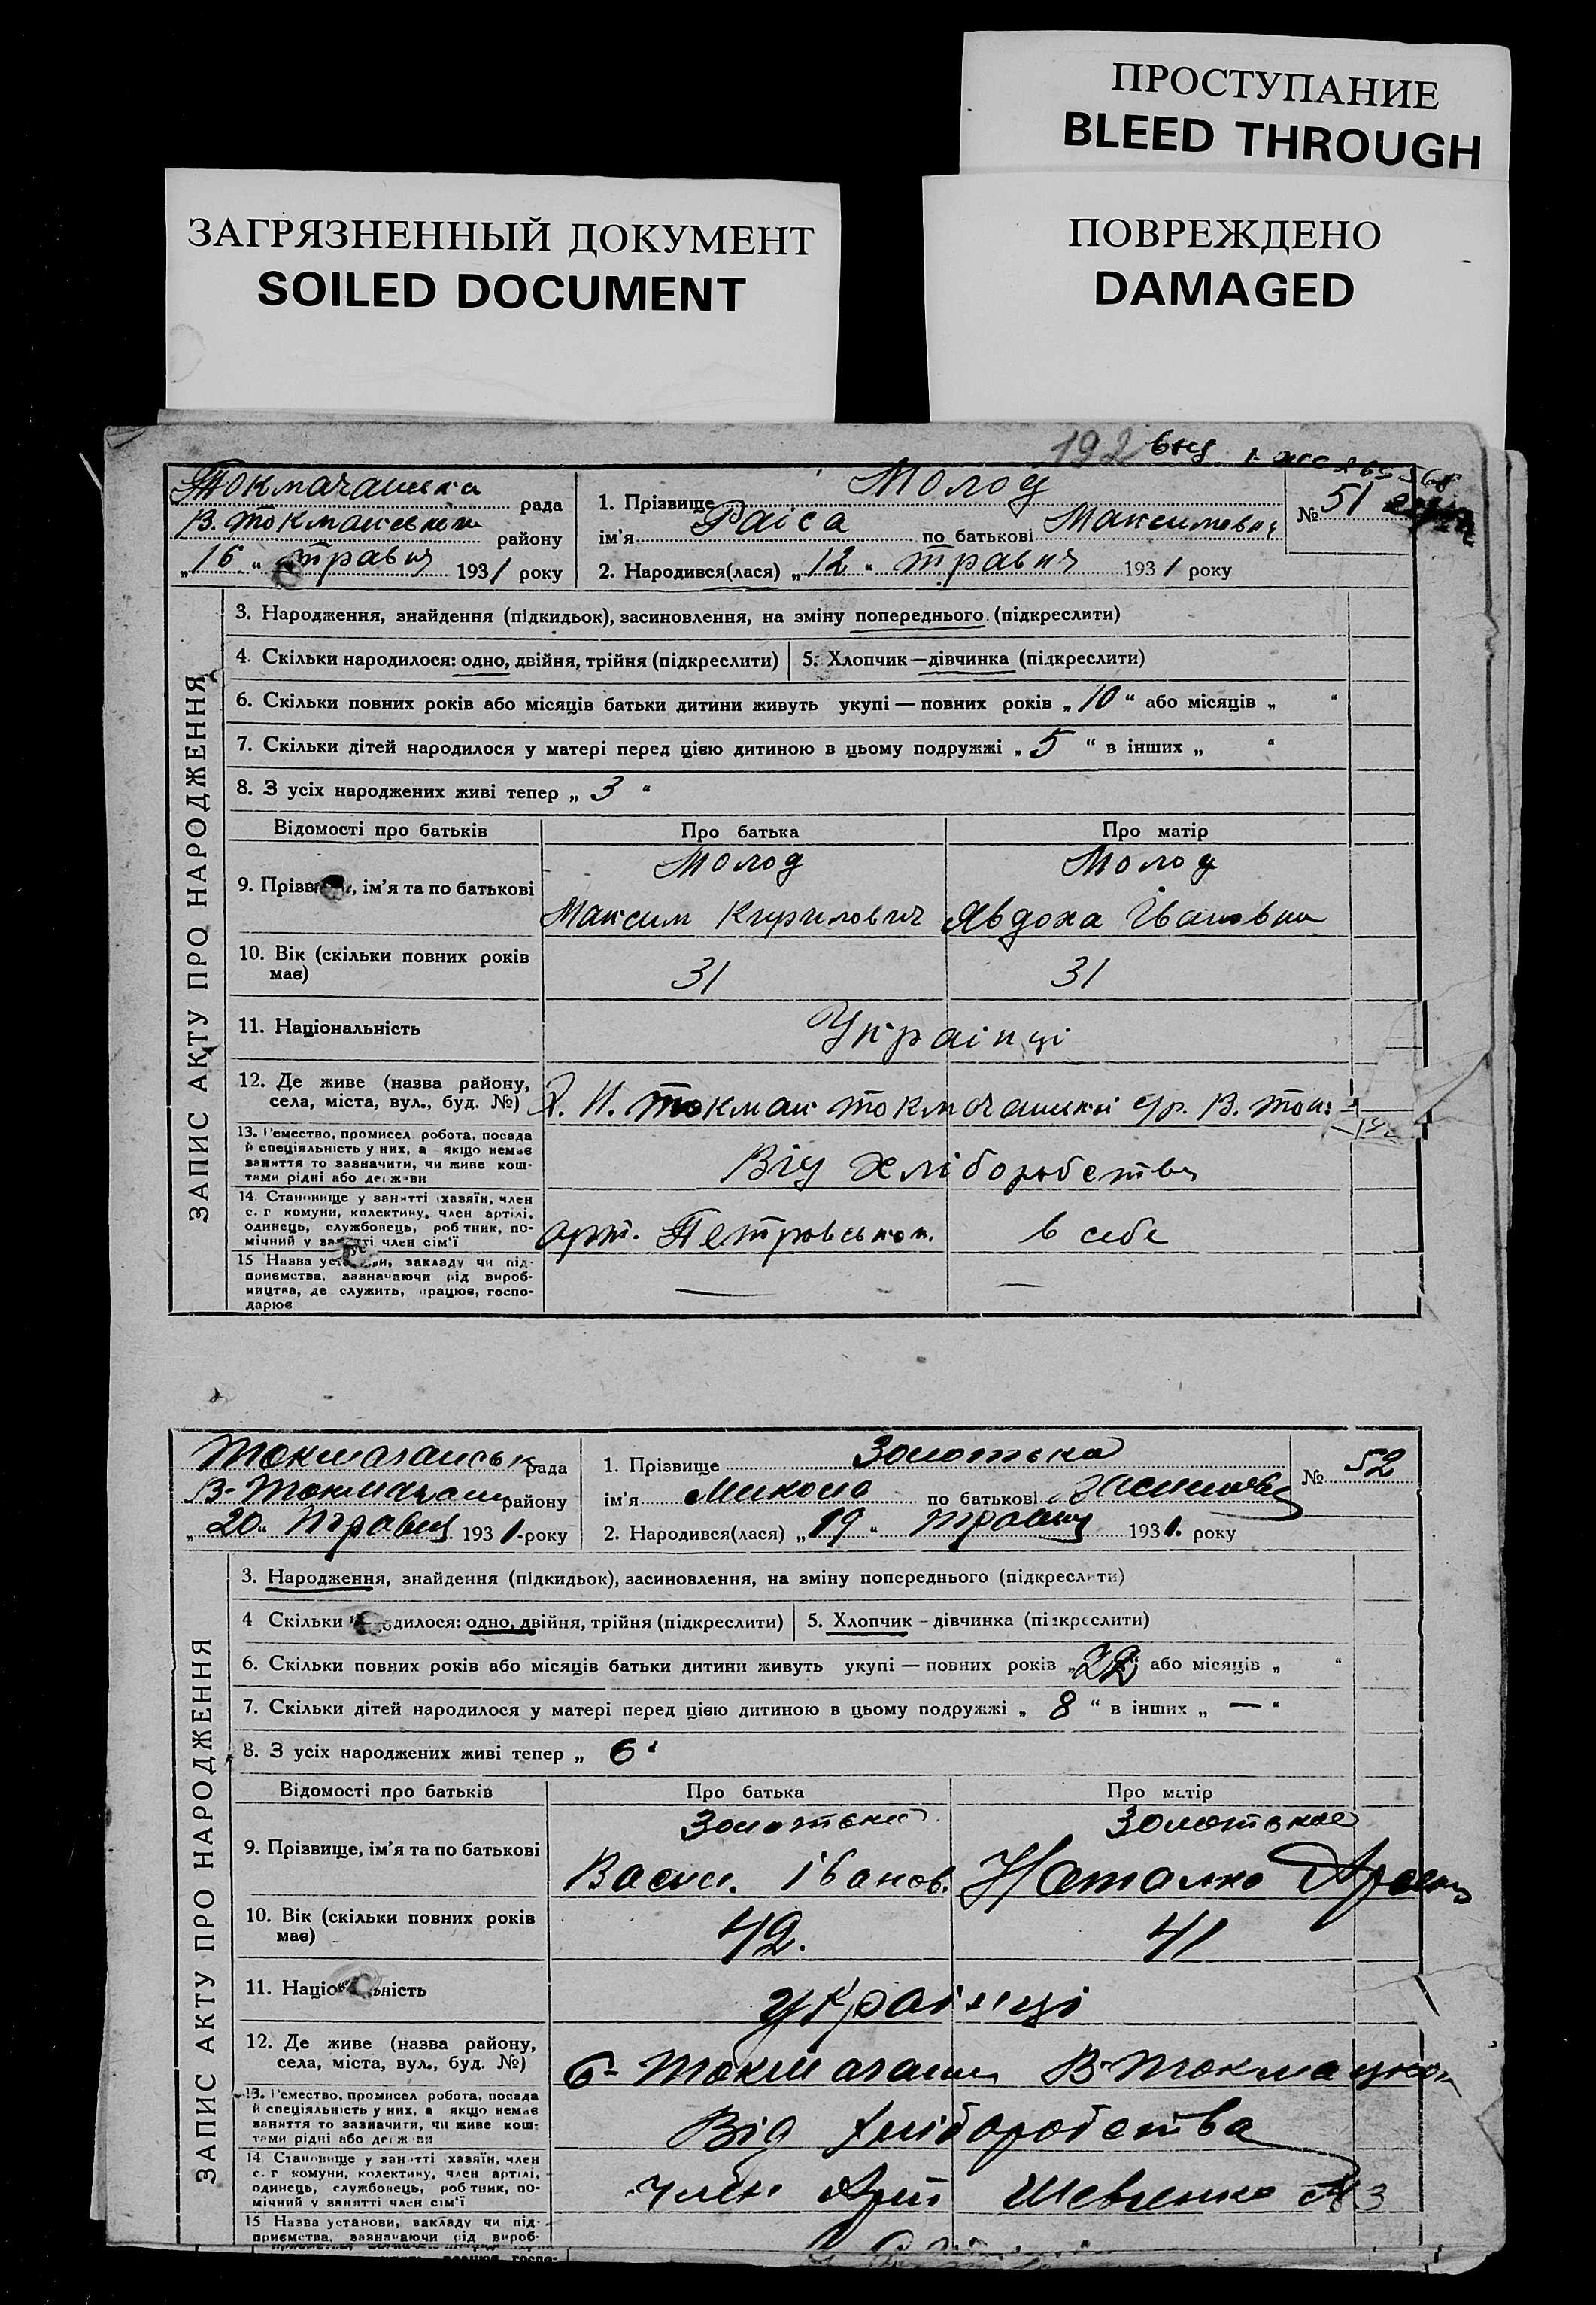 ПРОСТУПАНИЕ
BLEED THROUGH
ЗАГРЯЗНЕННЫЙ ДОКУМЕНТ
SOILED DOCUMENT
ПОВРЕЖДЕНО
DAMAGED
192
рада
району
„16“ травня 1931 року
1. Прізвище Молод
ім'я Раіса по батькові Максимовна
2. Народився(лася) „12“ травня 1931 року
№ 51
ЗАПИС АКТУ ПРО НАРОДЖЕННЯ
3. Народження, знайдення (підкидьок), засиновлення, на зміну попереднього (підкреслити)
4. Скільки народилося: одно, двійня, трійня (підкреслити) 5. Хлопчик—дівчинка (підкреслити)
6. Скільки повних років або місяців батьки дитини живуть укупі — повних років „10“ або місяців „ “
7. Скільки дітей народилося у матері перед цією дитиною в цьому подружжі „5“ в інших „ “
8. З усіх народжених живі тепер „3“
Відомості про батьків Про батька Про матір
9. , ім'я та по батькові Молод Молод
Максим Кирилович Явдоха Івановна
10. Вік (скільки повних років має) 31 31
11. Національність Украінці
12. Де живе (назва району,
села, міста, вул., буд. №)
13. Ремество, промисел робота, посада
й спеціяльність у них, а якщо немає
заняття то зазначити, чи живе кош-
тами рідні або держави
Від хліборобства
14. Становище у занятті хазяїн, член
с. г комуни, колективу, член артілі,
одинець, службовець, робтник, по-
мічний у занятті член сім'ї
арт. Петровськог. в себе
15 Назва установи, закладу чи під-
приємства, зазначаючи рід вироб-
ництва, де служить, працює, госпо-
дарює
— —
рада
району
„20“ Травня 1931. року
1. Прізвище Золотько
ім'я Микола по батькові
2. Народився(лася) „19“ травня 1931. року
№ 52
ЗАПИС АКТУ ПРО НАРОДЖЕННЯ
3. Народження, знайдення (підкидьок), засиновлення, на зміну попереднього (підкреслити)
4 Скільки одилося: одно, двійня, трійня (підкреслити) 5. Хлопчик – дівчинка (підкреслити)
6. Скільки повних років або місяців батьки дитини живуть укупі — повних років „22“ або місяців „ “
7. Скільки дітей народилося у матері перед цією дитиною в цьому подружжі „8“ в інших „—“
8. З усіх народжених живі тепер „6“
Відомості про батьків Про батька Про матір
9. Прізвище, ім'я та по батькові Золотько Золотько
Васил. Іванов. Наталка
10. Вік (скільки повних років має) 42. 41
11. Національність украінці
12. Де живе (назва району,
села, міста, вул., буд. №)
13. Ремество, промисел робота, посада
й спеціяльність у них, а якщо немає
заняття то зазначити, чи живе кош-
тами рідні або держави
Від хліборобства
14. Становище у занятті хазяїн, член
с. г комуни, колективу, член артілі,
одинець, службовець, робтник, по-
мічний у занятті член сім'ї
член Арт Шевченко № 3
15 Назва установи, закладу чи під-
приємства, зазначаючи рід вироб-